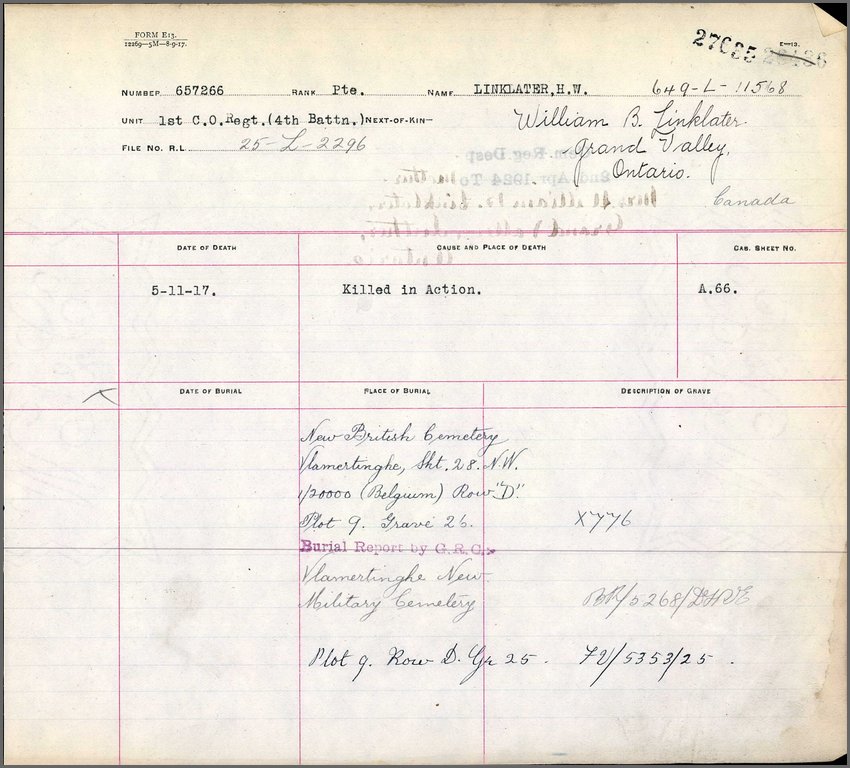 FORM E13.
12269—5M—8-9-17.
27065
E—13.
NUMBER 657266 RANK Pte. NAME LINKLATER,H.W. 649-L-11568
UNIT 1st C.O.Regt.(4th Battn.) NEXT-OF-KIN— William B. Linklater.
FILE NO. R.L. 25-L-2296 Grand Valley,
Ontario.
Canada
DATE OF DEATH CAUSE AND PLACE OF DEATH CAS. SHEET NO.
5-11-17. Killed in Action. A.66.
DATE OF BURIAL PLACE OF BURIAL DESCRIPTION OF GRAVE
New British Cemetery
Vlamertinghe, Sht. 28. N.W.
1/20000 (Belgium) Row "D".
Plot 9. Grave 26. X776
Burial Report by G.R.C.
Vlamertinghe New
Military Cemetery
Plot 9. Row D. Gr 25. FV/5353/25.